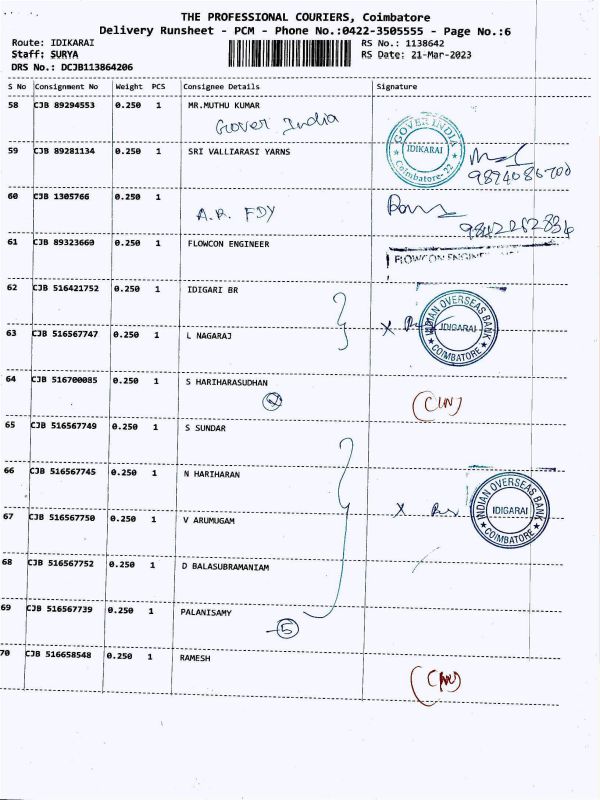 THE PROFESSIONAL COURIERS, Coimbatore
Delivery Runsheet - PCM - Phone No.:0422-3505555 - Page No.:6
Route: IDIKARAI RS No.: 1138642
Staff: SURYA RS Date: 21-Mar-2023
DRS No.: DCJB113864206
S No Consignment No Weight PCS Consignee Details Signature
58 CJB 89294553 0.250 1 MR.MUTHU KUMAR
Gover India
GOVER INDIA
IDIKARAI
Coimbatore-22
59 CJB 89281134 0.250 1 SRI VALLIARASI YARNS
9894086700
60 CJB 1305766 0.250 1
A.R. FDY
9842262836
61 CJB 89323660 0.250 1 FLOWCON ENGINEER
FLOWCON ENGINE
62 CJB 516421752 0.250 1 IDIGARI BR
INDIAN OVERSEAS BANK
IDIGARAI
COIMBATORE
63 CJB 516567747 0.250 1 L NAGARAJ
X
64 CJB 516700085 0.250 1 S HARIHARASUDHAN
65 CJB 516567749 0.250 1 S SUNDAR
66 CJB 516567745 0.250 1 N HARIHARAN
INDIAN OVERSEAS BANK
IDIGARAI
COIMBATORE
67 CJB 516567750 0.250 1 V ARUMUGAM
X
68 CJB 516567752 0.250 1 D BALASUBRAMANIAM
69 CJB 516567739 0.250 1 PALANISAMY
5
70 CJB 516658548 0.250 1 RAMESH